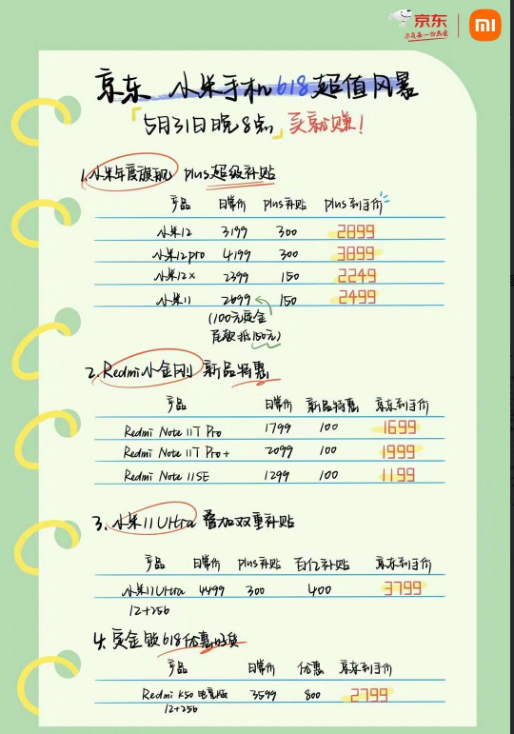 京东
不负每一份热爱
京东 小米手机618超值风暴
「5月31日晚8点」买就赚!
1.小米年度旗舰 plus超级补贴
产品 日常价 plus补贴 plus到手价
小米12 3199 300 2899
小米12pro 4199 300 3899
小米12x 2399 150 2249
小米11 2699 150 2499
(100元定金
尾款抵150元)
2.Redmi小金刚 新品特惠
产品 日常价 新品特惠 京东到手价
Redmi Note 11T Pro 1799 100 1699
Redmi Note 11T Pro+ 2099 100 1999
Redmi Note 11SE 1299 100 1199
3.小米11Ultra 叠加双重补贴
产品 日常价 plus补贴 百亿补贴 京东到手价
小米11Ultra 4499 300 400 3799
12+256
4.定金锁618优惠好货
产品 日常价 优惠 京东到手价
Redmi K50 电竞版 3599 800 2799
12+256